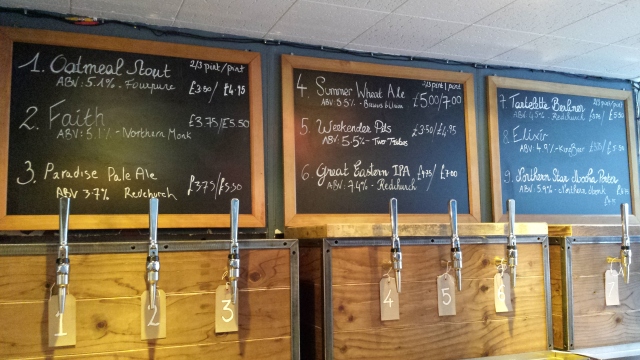 1. Oatmeal Stout 2/3 pint / pint
ABV: 5.1% - Fourpure £3.50/ £4.95
2. Faith £3.75/£5.50
ABV: 5.1% - Northern Monk
3. Paradise Pale Ale
ABV 3.7% Redchurch £3.75/£5.50
4. Summer Wheat Ale 2/3 pint / pint
ABV: 5.5% - £5.00/7.00
5. Weekender Pils £3.50/£4.95
5.5% - Two Tribes
6. Great Eastern IPA
ABV: 7.4% - Redchurch
7 Tartelette Berliner 2/3 pint / pint
ABV: 4.5% - Redchurch
8 Elixir
ABV:
9. Northern Star Mocha Porter
ABV: 5.9% - Northern Monk
1
2
3
4
5
6
7